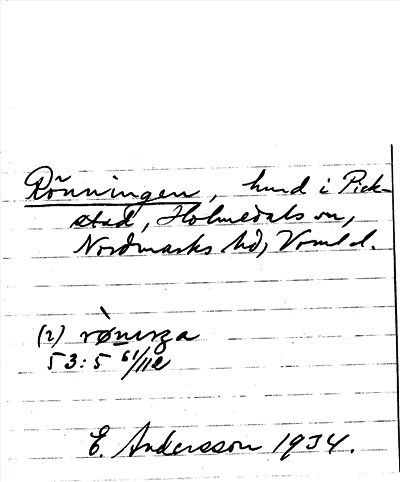 Rönningen, hund i Pick-
stad, Holmedals sn,
Nordmarks hd, Vrml d.
(2)
53:5 61/112
E. Andersson 1934.